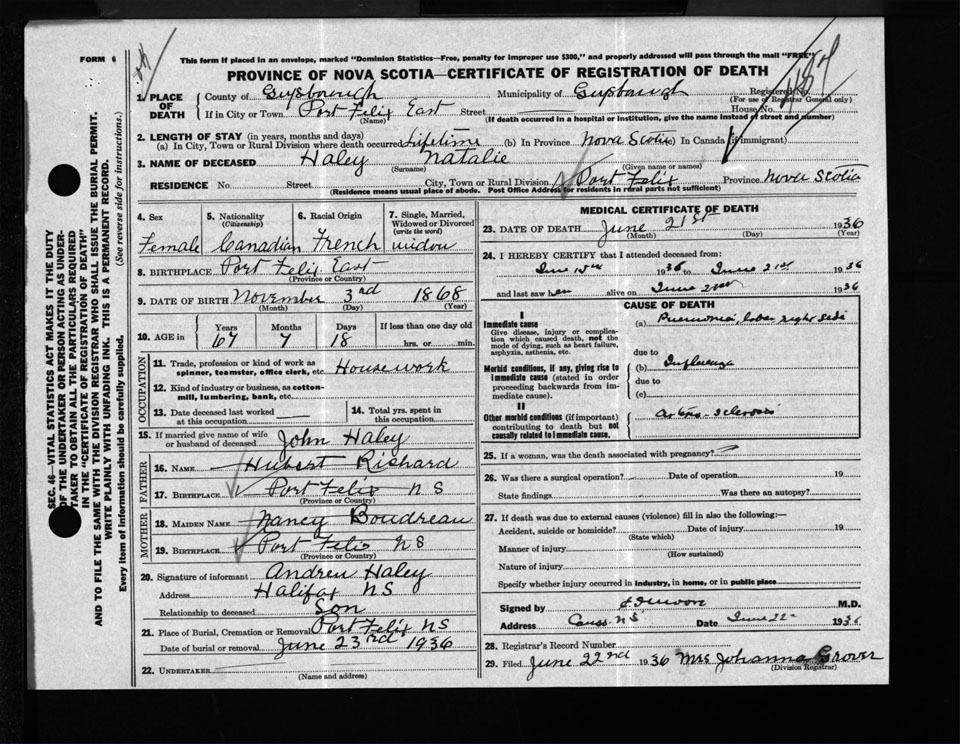 FORM 6
This form if placed in an envelope, marked "Dominion Statistics—Free, penalty for improper use $300," and properly addressed will pass through the mail "FREE"
PROVINCE OF NOVA SCOTIA—CERTIFICATE OF REGISTRATION OF DEATH
1. PLACE OF DEATH
County of Guysborough Municipality of Guysborough Registered No.
(For use of Registrar General only)
If in City or Town Port Felix East Street House No.
(Name) (If death occurred in a hospital or institution, give the name instead of street and number)
2. LENGTH OF STAY (in years, months and days)
(a) In City, Town or Rural Division where death occurred Lifetime (b) In Province Nova Scotia In Canada (if immigrant)
3. NAME OF DECEASED Haley Natalie
(Surname) (Given name or names)
RESIDENCE No. Street City, Town or Rural Division Port Felix Province Nova Scotia
(Residence means usual place of abode. Post Office Address for residents in rural parts not sufficient)
4. Sex 5. Nationality (Citizenship) 6. Racial Origin 7. Single, Married, Widowed or Divorced (write the word)
Female Canadian French widow
8. BIRTHPLACE Port Felix East
(Province or Country)
9. DATE OF BIRTH November 3rd 1868
(Month) (Day) (Year)
10. AGE in Years Months Days If less than one day old
67 7 18 hrs. or min.
OCCUPATION
11. Trade, profession or kind of work as spinner, teamster, office clerk, etc. Housework
12. Kind of industry or business, as cotton-mill, lumbering, bank, etc.
13. Date deceased last worked at this occupation
14. Total yrs. spent in this occupation
15. If married give name of wife or husband of deceased John Haley
FATHER
16. NAME Hubert Richard
17. BIRTHPLACE Port Felix N S
(Province or Country)
MOTHER
18. MAIDEN NAME Nancy Boudreau
19. BIRTHPLACE Port Felix N S
(Province or Country)
20. Signature of informant Andrew Haley
Address Halifax N S
Relationship to deceased Son
21. Place of Burial, Cremation or Removal Port Felix N S
Date of burial or removal June 23rd 1936
22. UNDERTAKER
(Name and address)
MEDICAL CERTIFICATE OF DEATH
23. DATE OF DEATH June 21st 1936
(Month) (Day) (Year)
24. I HEREBY CERTIFY that I attended deceased from:
1936 to June 21st 1936
and last saw her alive on June 21st 1936
CAUSE OF DEATH
I
Immediate cause
Give disease, injury or complication which caused death, not the mode of dying, such as heart failure, asphyxia, asthenia, etc.
(a) Pneumonia, lobar right side
due to
Morbid conditions, if any, giving rise to immediate cause (stated in order proceeding backwards from immediate cause).
(b) Influenza
due to
(c)
II
Other morbid conditions (if important) contributing to death but not causally related to immediate cause.
Arterio-sclerosis
25. If a woman, was the death associated with pregnancy?
26. Was there a surgical operation? Date of operation 19
State findings Was there an autopsy?
27. If death was due to external causes (violence) fill in also the following:
Accident, suicide or homicide? Date of injury 19
(State which)
Manner of injury
(How sustained)
Nature of injury
Specify whether injury occurred in industry, in home, or in public place
Signed by M.D.
Address Canso N S Date June 22 1936
28. Registrar's Record Number
29. Filed June 22nd 1936 Mrs Johanna Grover
(Division Registrar)
SEC. 46—VITAL STATISTICS ACT MAKES IT THE DUTY
OF THE UNDERTAKER OR PERSON ACTING AS UNDER-
TAKER TO OBTAIN ALL THE PARTICULARS REQUIRED
IN THE "CERTIFICATE OF REGISTRATION OF DEATH"
AND TO FILE THE SAME WITH THE DIVISION REGISTRAR WHO SHALL ISSUE THE BURIAL PERMIT.
WRITE PLAINLY WITH UNFADING INK. THIS IS A PERMANENT RECORD.
Every item of information should be carefully supplied. (See reverse side for instructions.)